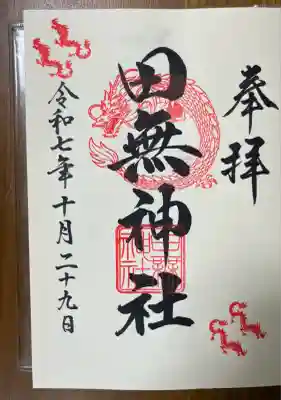 奉拝
田無神社
令和七年十月二十九日